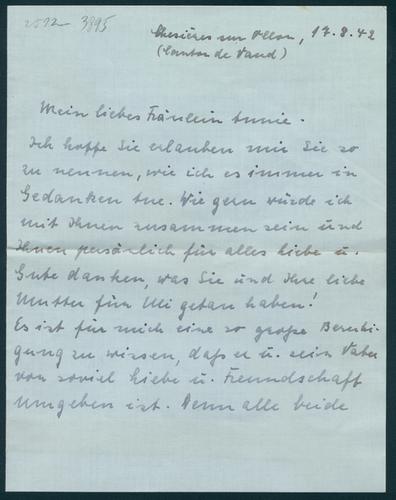 2512 3895
Chesières sur Ollon, 17.8.42
(Canton de Vaud)
Mein liebes Fräulein Annie.
Ich hoffe Sie erlauben mir Sie so
zu nennen, wie ich es immer in
Gedanken tue. Wie gern würde ich
mit Ihnen zusammen sein und
Ihnen persönlich für alles Liebe u.
Gute danken, was Sie und Ihre liebe
Mutter für Uli getan haben!
Es ist für mich eine so große Beruhi-
gung zu wissen, daß er u. sein Vater
von soviel Liebe u. Freundschaft
umgeben ist. Denn alle beide